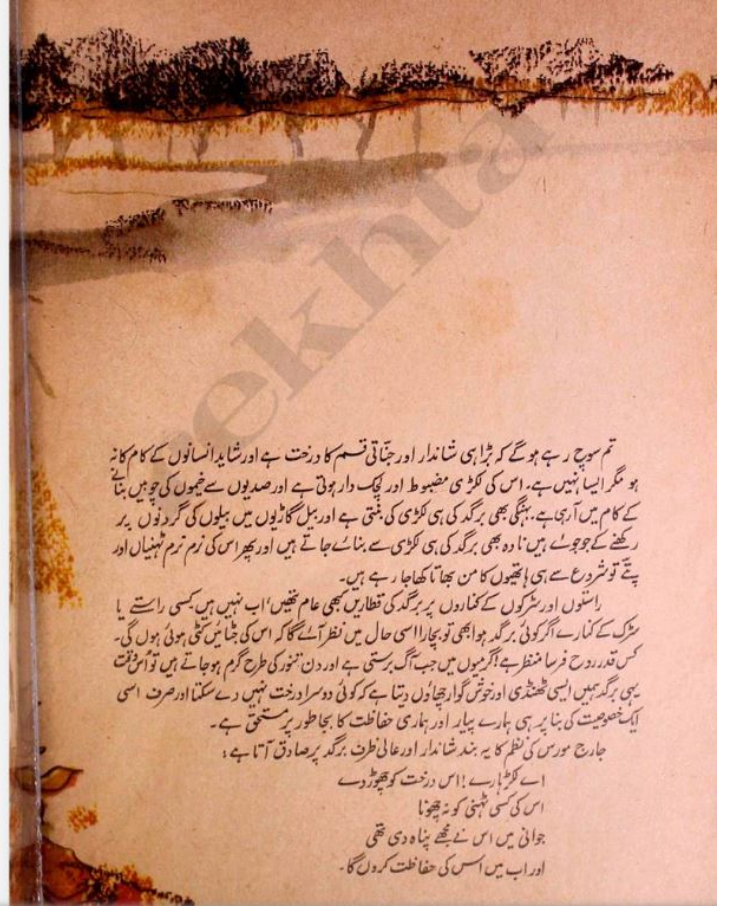 تم سوچ رہے ہوگے کہ بڑا ہی شاندار اور جنّاتی قسم کا درخت ہے اور شاید انسانوں کے کام کا نہ
ہو مگر ایسا نہیں ہے۔ اس کی لکڑی مضبوط اور لچک دار ہوتی ہے اور صدیوں سے خیموں کی چوبیں بنانے
کے کام میں آرہی ہے۔ بہنگی بھی برگد کی ہی لکڑی کی بنتی ہے اور بیل گاڑیوں میں بیلوں کی گردنوں پر
رکھنے کے جو جوئے ہیں نا وہ بھی برگد کی ہی لکڑی سے بنائے جاتے ہیں اور پھر اس کی نرم نرم ٹہنیاں اور
پتّے تو شروع سے ہی ہاتھیوں کا من بھاتا کھاجا رہے ہیں۔
راستوں اور سڑکوں کے کناروں پر برگد کی قطاریں کبھی عام تھیں، اب نہیں ہیں کسی راستے یا
سڑک کے کنارے اگر کوئی برگد ہوا بھی تو بچارا اسی حال میں نظر آئے گا کہ اس کی جٹائیں کٹی ہوئی ہوں گی۔
کس قدر روح فرسا منظر ہے! گرمیوں میں جب آگ برستی ہے اور دن تنور کی طرح گرم ہو جاتے ہیں تو اُس وقت
یہی برگد ہمیں ایسی ٹھنڈی اور خوش گوار چھاؤں دیتا ہے کہ کوئی دوسرا درخت نہیں دے سکتا اور صرف اسی
ایک خصوصیت کی بنا پر ہی ہمارے پیار اور ہماری حفاظت کا بجا طور پر مستحق ہے۔
جارج مورس کی نظم کا یہ بند شاندار اور عالی ظرف برگد پر صادق آتا ہے:
اے لکڑہارے! اس درخت کو چھوڑ دے
اس کی کسی ٹہنی کو نہ چھونا
جوانی میں اس نے مجھے پناہ دی تھی
اور اب میں اس کی حفاظت کروں گا۔
rekhta